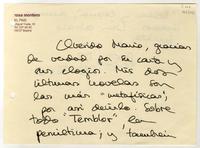 rosa montero
EL PAIS
Miguel Yuste, 40
28037 Madrid
Querido Mario, gracias
de verdad por tu carta y
tus elogios. Mis dos
últimas novelas son
las más "metafísicas",
por así decirlo. Sobre
todo "Temblor" la
penúltima; y también